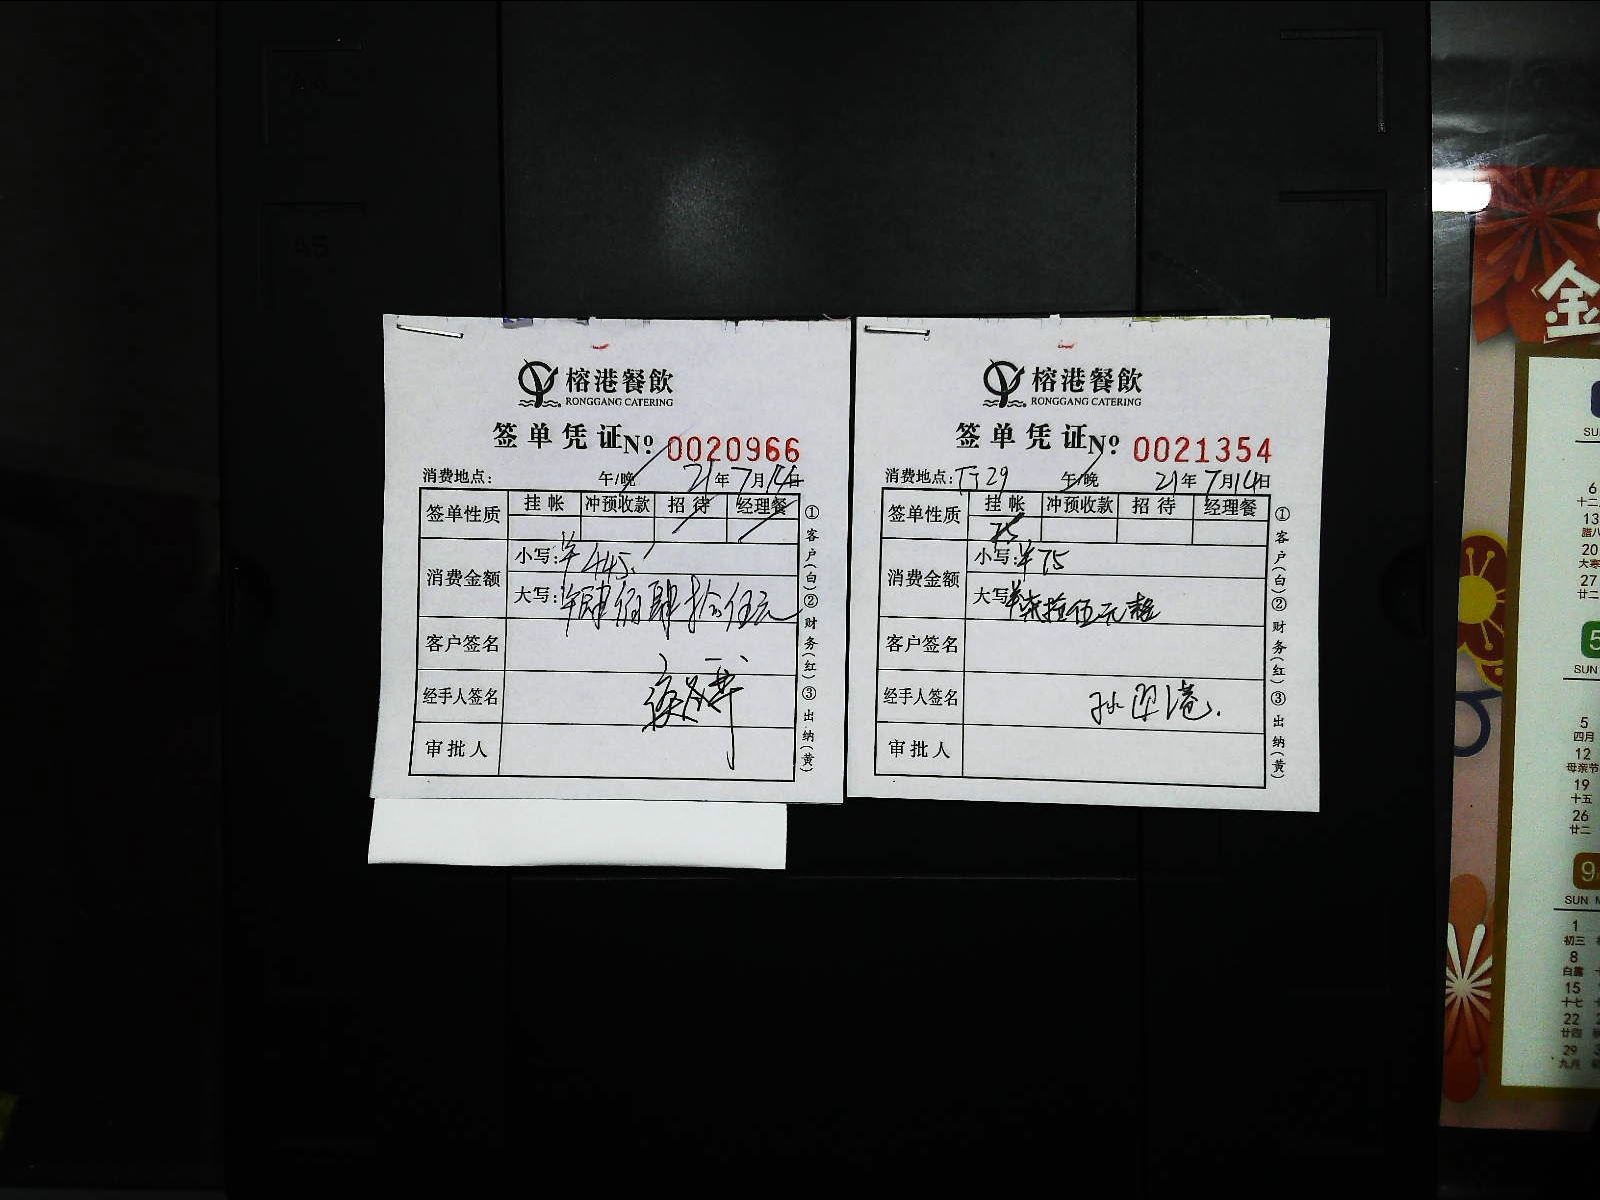 榕港餐飲
RONGGANG CATERING
签单凭证 No 0020966
消费地点： 午/晚 21年7月14日
签单性质 挂帐 冲预收款 招待 经理餐
消费金额 小写：￥445.
大写：￥肆佰肆拾伍元
客户签名
经手人签名
审批人
①客户(白)②财务(红)③出纳(黄)
榕港餐飲
RONGGANG CATERING
签单凭证 No 0021354
消费地点：厅29 午/晚 21年7月14日
签单性质 挂帐 冲预收款 招待 经理餐
75
消费金额 小写：￥75
大写：￥柒拾伍元整
客户签名
经手人签名
审批人
①客户(白)②财务(红)③出纳(黄)
A5
金
SU
6
十二
13
腊八
20
大寒
27
廿二
5
SUN
5
四月
12
母亲节
19
十五
26
廿二
9
SUN M
1
初三
8
白露
15
十七
22
廿四
29
九月